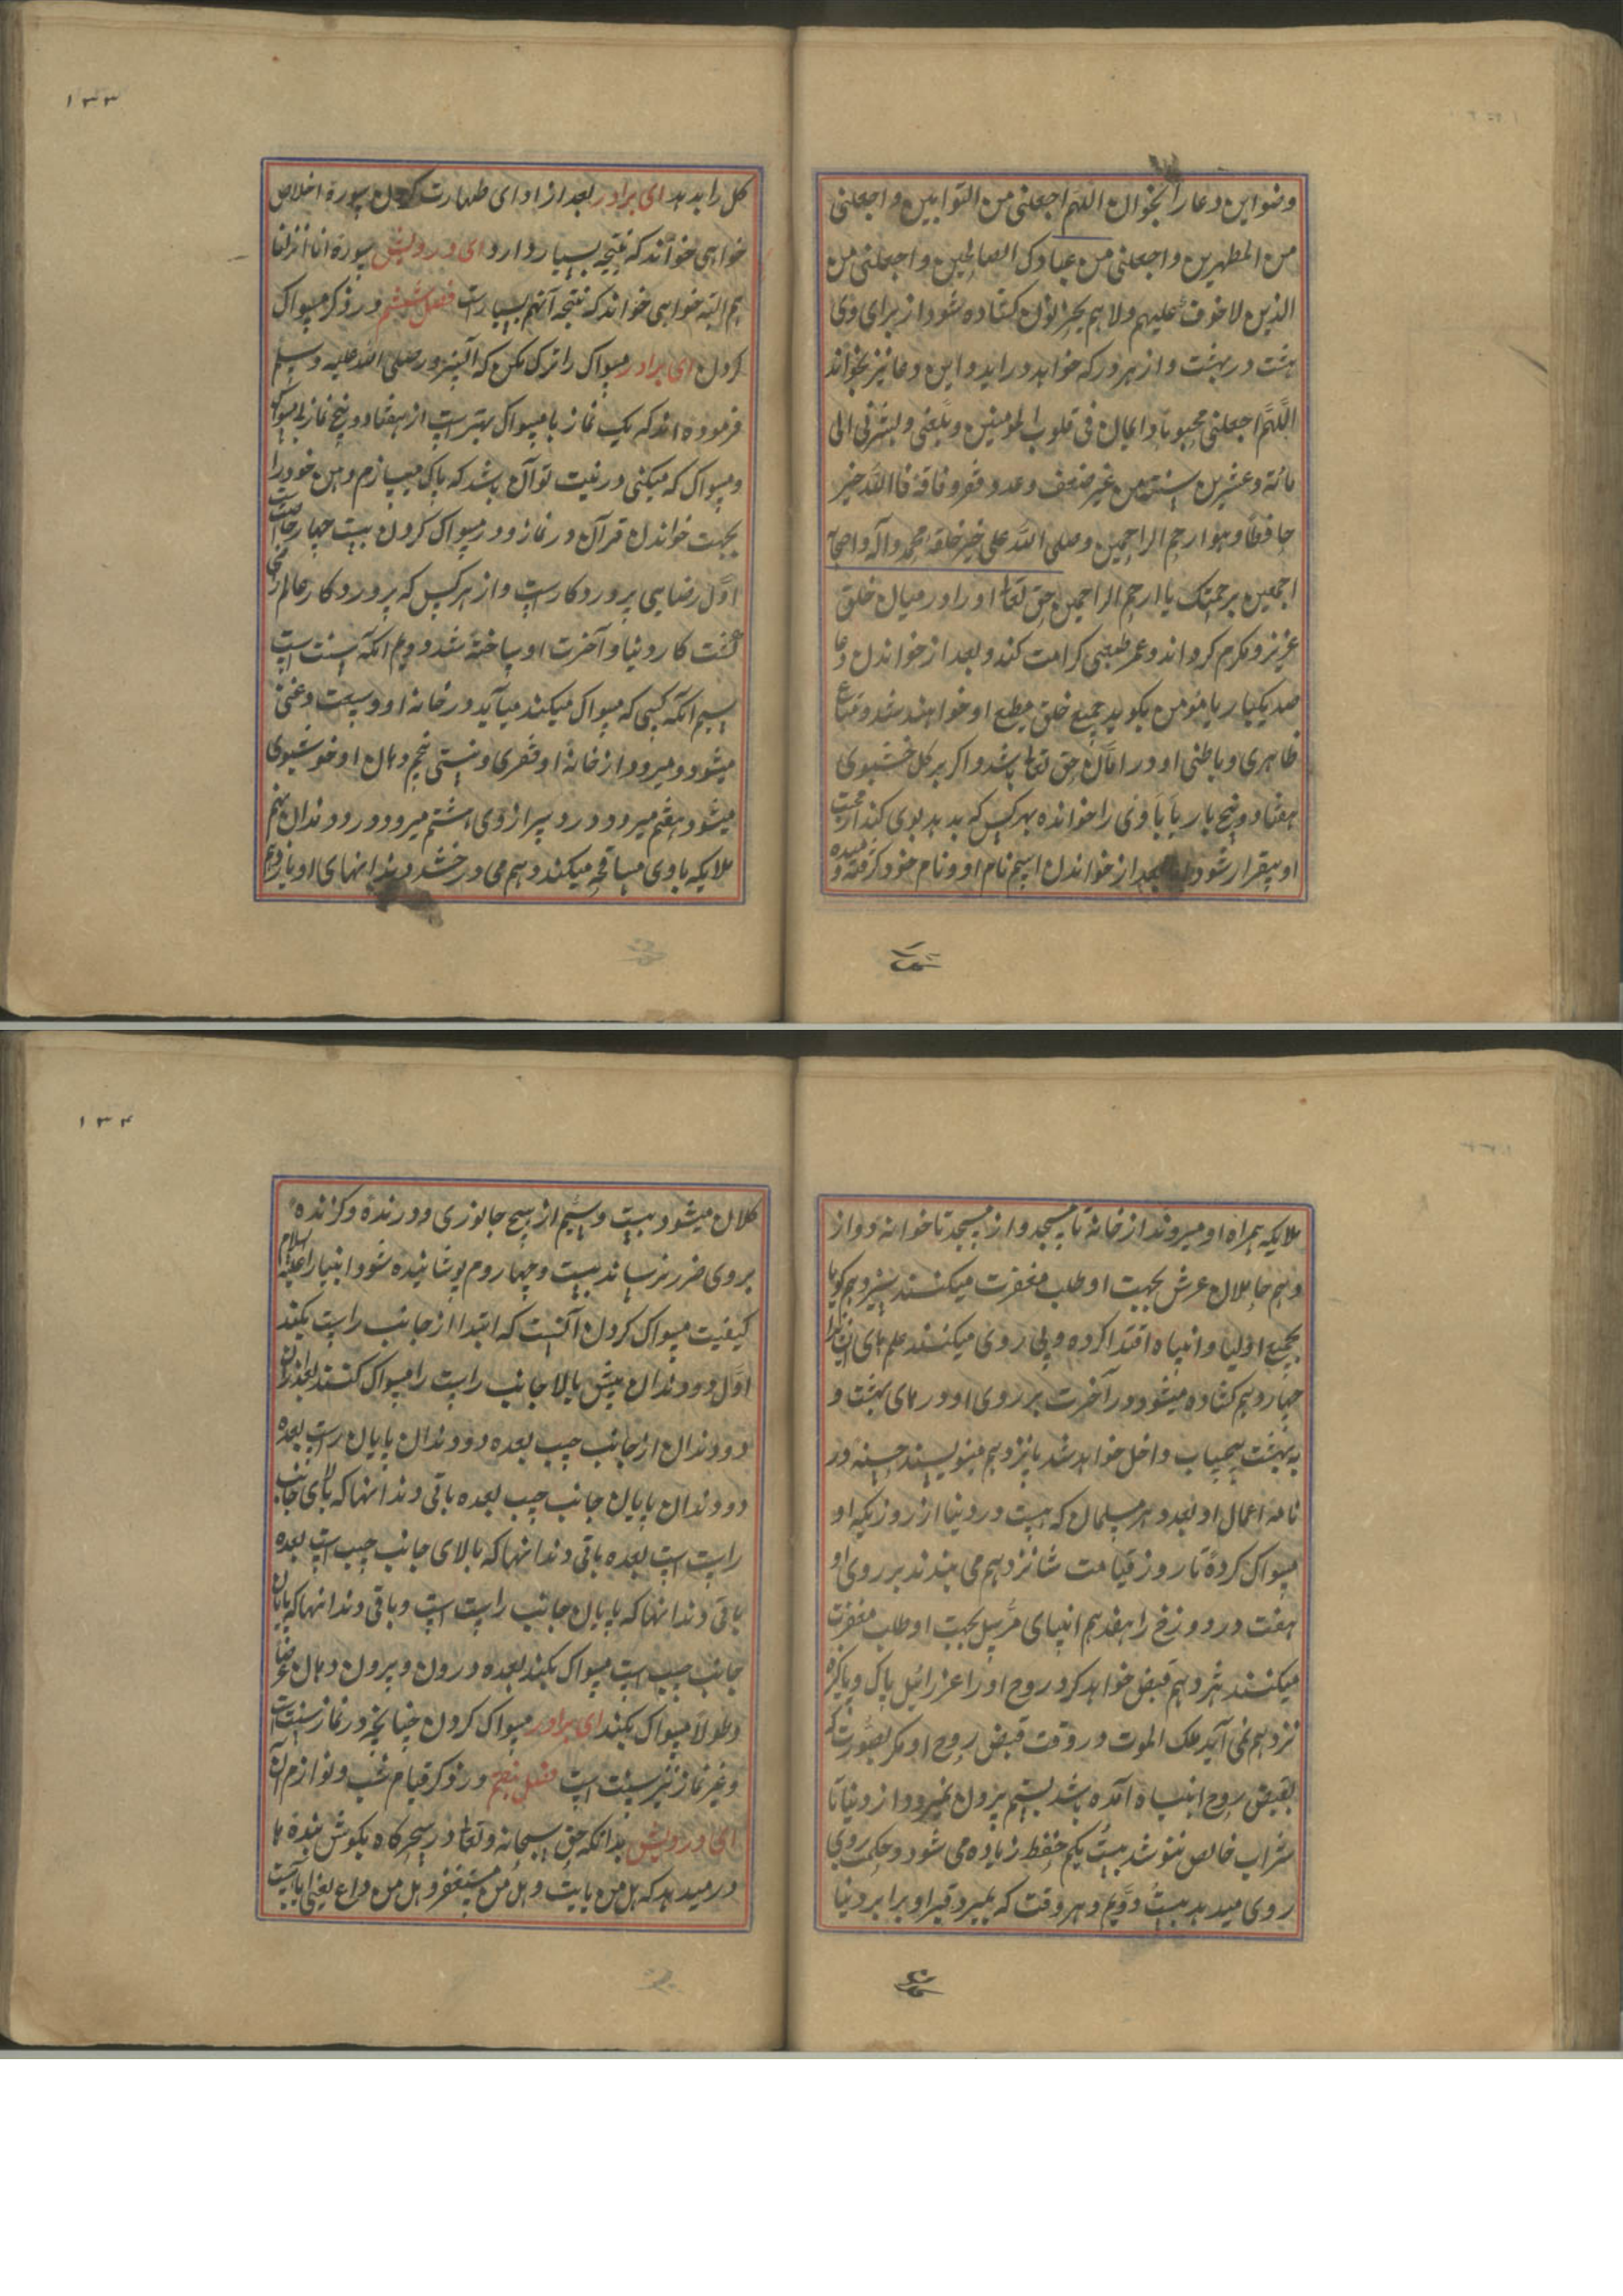 وضو این دعا را بخوان اللهم اجعلنی من التوابین و اجعلنی
من المطهرین و اجعلنی من عبادک الصالحین و اجعلنی من
الذین لا خوف علیهم ولا هم یحزنون کشاده شود از برای وی
هشت در بهشت و از هر در که خواهد در اید و این دعا نیز بخواند
اللهم اجعلنی محبوبا و ایمان فی قلوب المومنین و بلغنی و بشرنی الی
مائة و عشرین سنة من غیر ضعف و عدو و فقر و فاقة فا الله خیر
حافظا و هو ارحم الراحمین و صلی الله علی خیر خلقه محمد و آله و اصحابه
اجمعین برحمتک یا ارحم الراحمین حق تعا او را در میان خلق
عزیز و مکرم کرداند و عمر طبعی کرامت کند و بعد از خواندن دعا
صد یکبار یا مؤمن بکوید جمیع خلق مطیع او خواهند شد و متاع
ظاهری و باطنی او در امان حق تعا باشد و اکر بر کل خشبوی
هفتاد و پنج بار یا
را خوانده بهر کس که بدهد بوی کند از محبت
او بیقرار شود اما بعد از خواندن اسم نام او و نام خود کرفته دمیده و
۱۳۳
کل را بدهد ای برادر بعد از ادای طهارت کردن سورة اخلاص
خواهی خواند که نتیجه بسیار دارد ای درویش سورة انا انزلنا
هم البته خواهی خواند که نتیجه آنهم بسیارست فصل ششم در ذکر مسواک
کردن ای برادر مسواک را ترک مکن که آنسرور صلی الله علیه و سلم
فرموده اند که یک نماز با مسواک بهتر است از هفتاد و پنج نماز بی مسواک
و مسواک که میکنی در نیت تو آن باشد که پاک میسازم دهن خود را
بجهت خواندن قرآن در نماز و در مسواک کردن بیست چهار خاصیت است
اول رضایی پروردکار است و از هر کس که پروردکار عالم راضی
کشت کار دنیا و آخرت او ساخته شد دویم آنکه سنت است
سیم آنکه کسی که مسواک میکند میآید در خانه او وسعت و غنی
میشود و میرود از خانهٔ او فقری و نیستی پنجم دهان او خوشبوی
میشود هفتم میرود درد سر از وی هشتم میرود درد دندان نهم
ملایکه با وی مسافحه میکند دهم می درخشد دندانهای او یازدهم
ملایکه همراه او میروند از خانه تا به مسجد و از مسجد تا خوانه دواز
دهم حاملان عرش بجهت او طلب مغفرت میکنند سیزدهم کویا
بجمیع اولیا و انبیاء اقتدا کرده و پی روی میکنند علم های ایشانرا
چهاردهم کشاده میشود در آخرت بر روی او درهای بهشت و
به بهشت بیحساب داخل خواهد شد پانزدهم مینویسند حسنه در
نامهٔ اعمال او بعدد هر مسلمان که هست در دنیا از روزیکه او
مسواک کردهٔ تا روز قیامت شانزدهم می بندند بر روی او
هفت در دوزخ را هفدهم انبیای مرسل بجهت او طلب مغفرت
میکنند هژدهم قبض خواهد کرد روح او را عزرائیل پاک و پاکیزه
نزدهم نمی آید ملک الموت در وقت قبض روح او مکر بصورت که
بقبض روح انبیاء آمده باشد بیستم بیرون نمیرود از دنیا تا
شراب خالص ننوشد بیست یکم حفظ زیاده می شود و حکمت بروی
روی میدهد بیست دویم و هر وقت که بمیرد قبر او برابر دنیا
۱۳۴
کلان میشود بیست و سیم از هیچ جانوری و درندهٔ و کزنده
بر وی ضرر نرساند بیست و چهاروم پوشانیده شود انبیا را علیه السلام
کیفیت مسواک کردن آنست که ابتدا از جانب راست بکند
اول دو دندان پیش بالا جانب راست را مسواک کنند بعد از ان
دو دندان از جانب چپ بعده دو دندان پایان راست بعده
دو دندان پایان جانب چپ بعده باقی دندانها که بالای جانب
راست است بعده باقی دندانها که بالای جانب چپ است بعده
باقی دندانها که پایان جانب راست است و باقی دندانها که پایان
جانب چپ است مسواک بکند بعده درون و برون دهان عرضا
و طولا مسواک بکند ای برادر مسواک کردن چنانچه در نماز سنت است
و غیر نماز نیز سنت است فصل هفتم در ذکر قیام شب و لوازم آن
ای درویش بدانکه حق سبحانه و تعا در سحرکاه بکوش بندهٔ ما
در میدهد که هل من تایب و هل من مستغفر و هل من داع یعنی آیا هست